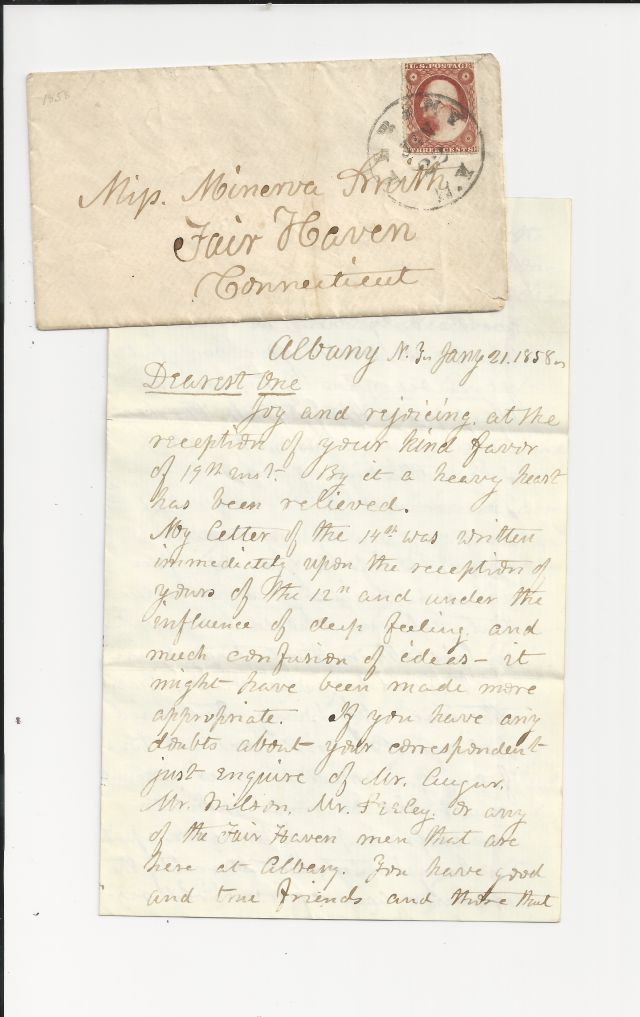 1858
U.S. POSTAGE
THREE CENTS
ALBANY N.Y.
Miss. Minerva Smith
Fair Haven
Connecticut
Albany N.Y. Jany 21. 1858.
Dearest One
Joy and rejoicing. at the
reception of your kind favor
of 19th inst. By it a heavy heart
has been relieved.
My letter of the 14th was written
immediately upon the reception of
yours of the 12th and under the
influence of deep feeling and
much confusion of ideas – it
might have been made more
appropriate. If you have any
doubts about your correspondent
just enquire of Mr. Augur.
Mr. Wilson. Mr. Feeley. or any
of the Fair Haven men that are
here at Albany. You have good
and true friends and those that